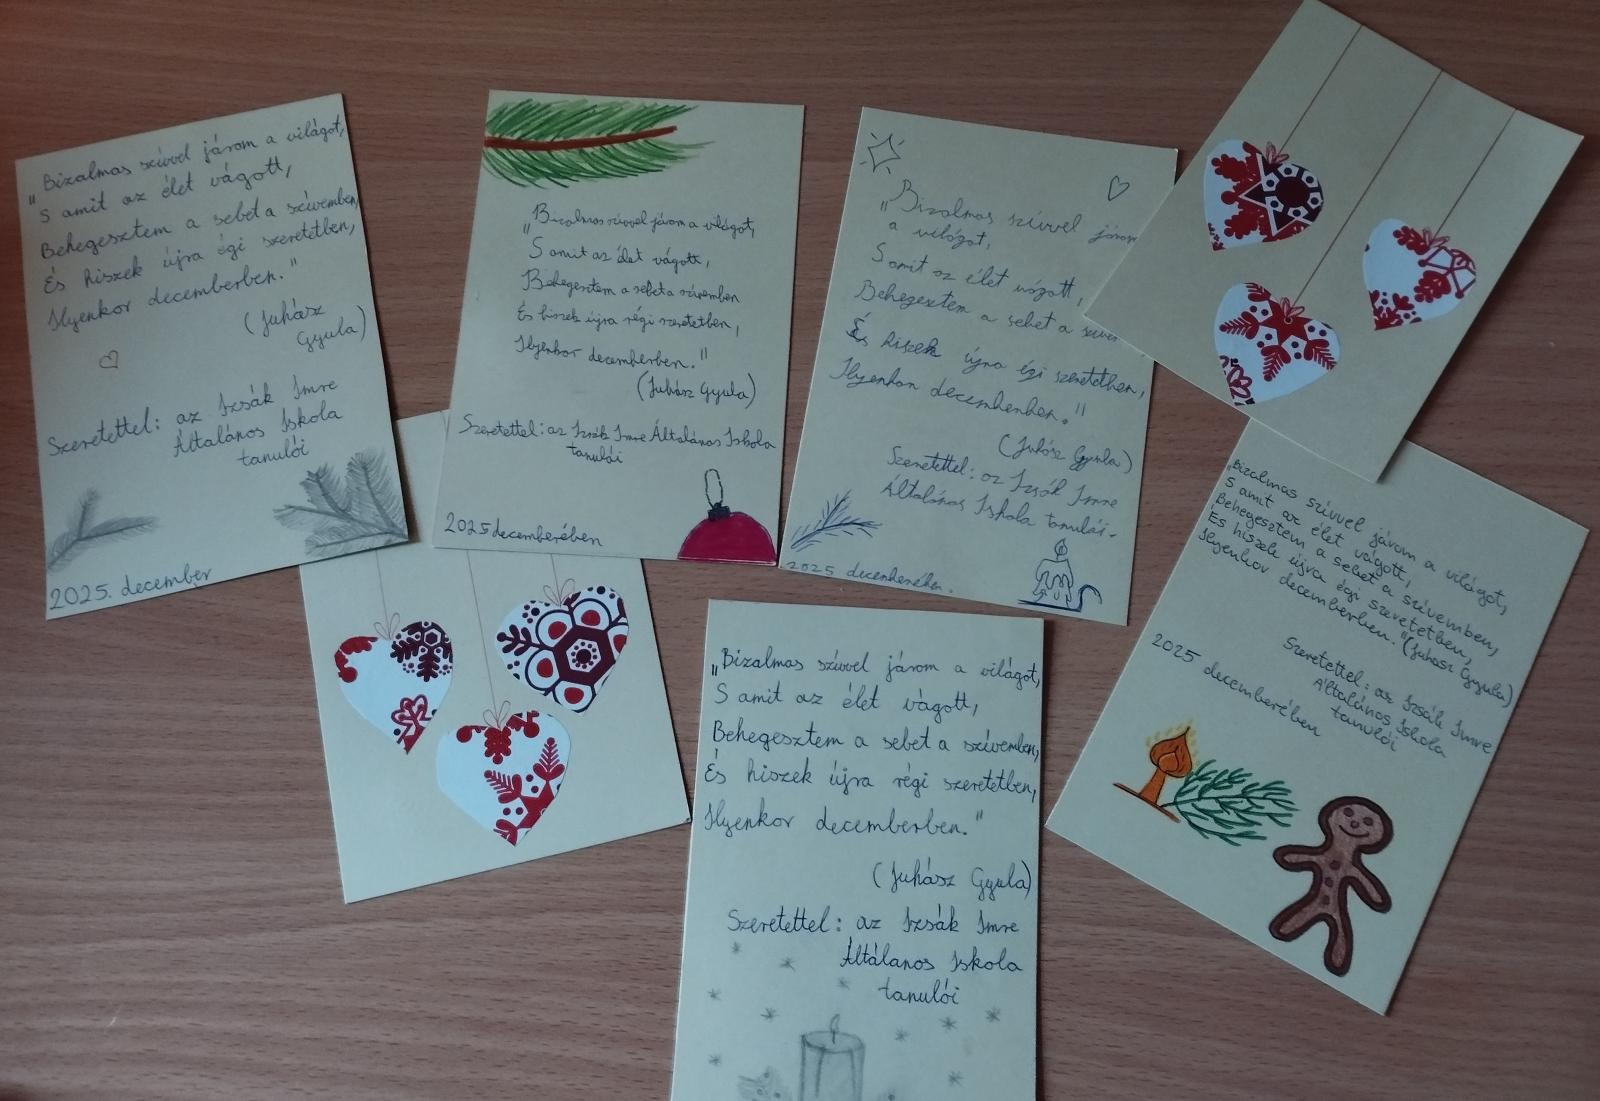 „Bizalmas szívvel járom a világot,
S amit az élet vágott,
Behegesztem a sebet a szívemben,
És hiszek újra égi szeretetben,
Ilyenkor decemberben."
(Juhász
Gyula)
Szeretettel: az Izsák Imre
Általános Iskola
tanulói
2025. december
„Bizalmas szívvel járom a világot,
S amit az élet vágott,
Behegesztem a sebet a szívemben
És hiszek újra régi szeretetben,
Ilyenkor decemberben."
(Juhász Gyula)
Szeretettel: az Izsák Imre Általános Iskola
tanulói
2025 decemberében
„Bizalmas szívvel járom
a világot,
S amit az élet vágott,
Behegesztem a sebet a
És hiszek újra égi szeretetben,
Ilyenkor decemberben."
(Juhász Gyula)
Szeretettel: az Izsák Imre
Általános Iskola tanulói.
2025 decemberében.
„Bizalmas szívvel járom a világot,
S amit az élet vágott,
Behegesztem a sebet a szívemben,
És hiszek újra égi szeretetben,
Ilyenkor decemberben." (Juhász Gyula)
Szeretettel: az Izsák Imre
Általános Iskola
tanulói
2025
decemberében
„Bizalmas szívvel járom a világot,
S amit az élet vágott,
Behegesztem a sebet a szívemben,
És hiszek újra régi szeretetben,
Ilyenkor decemberben."
(Juhász Gyula)
Szeretettel: az Izsák Imre
Áltálanos Iskola
tanulói